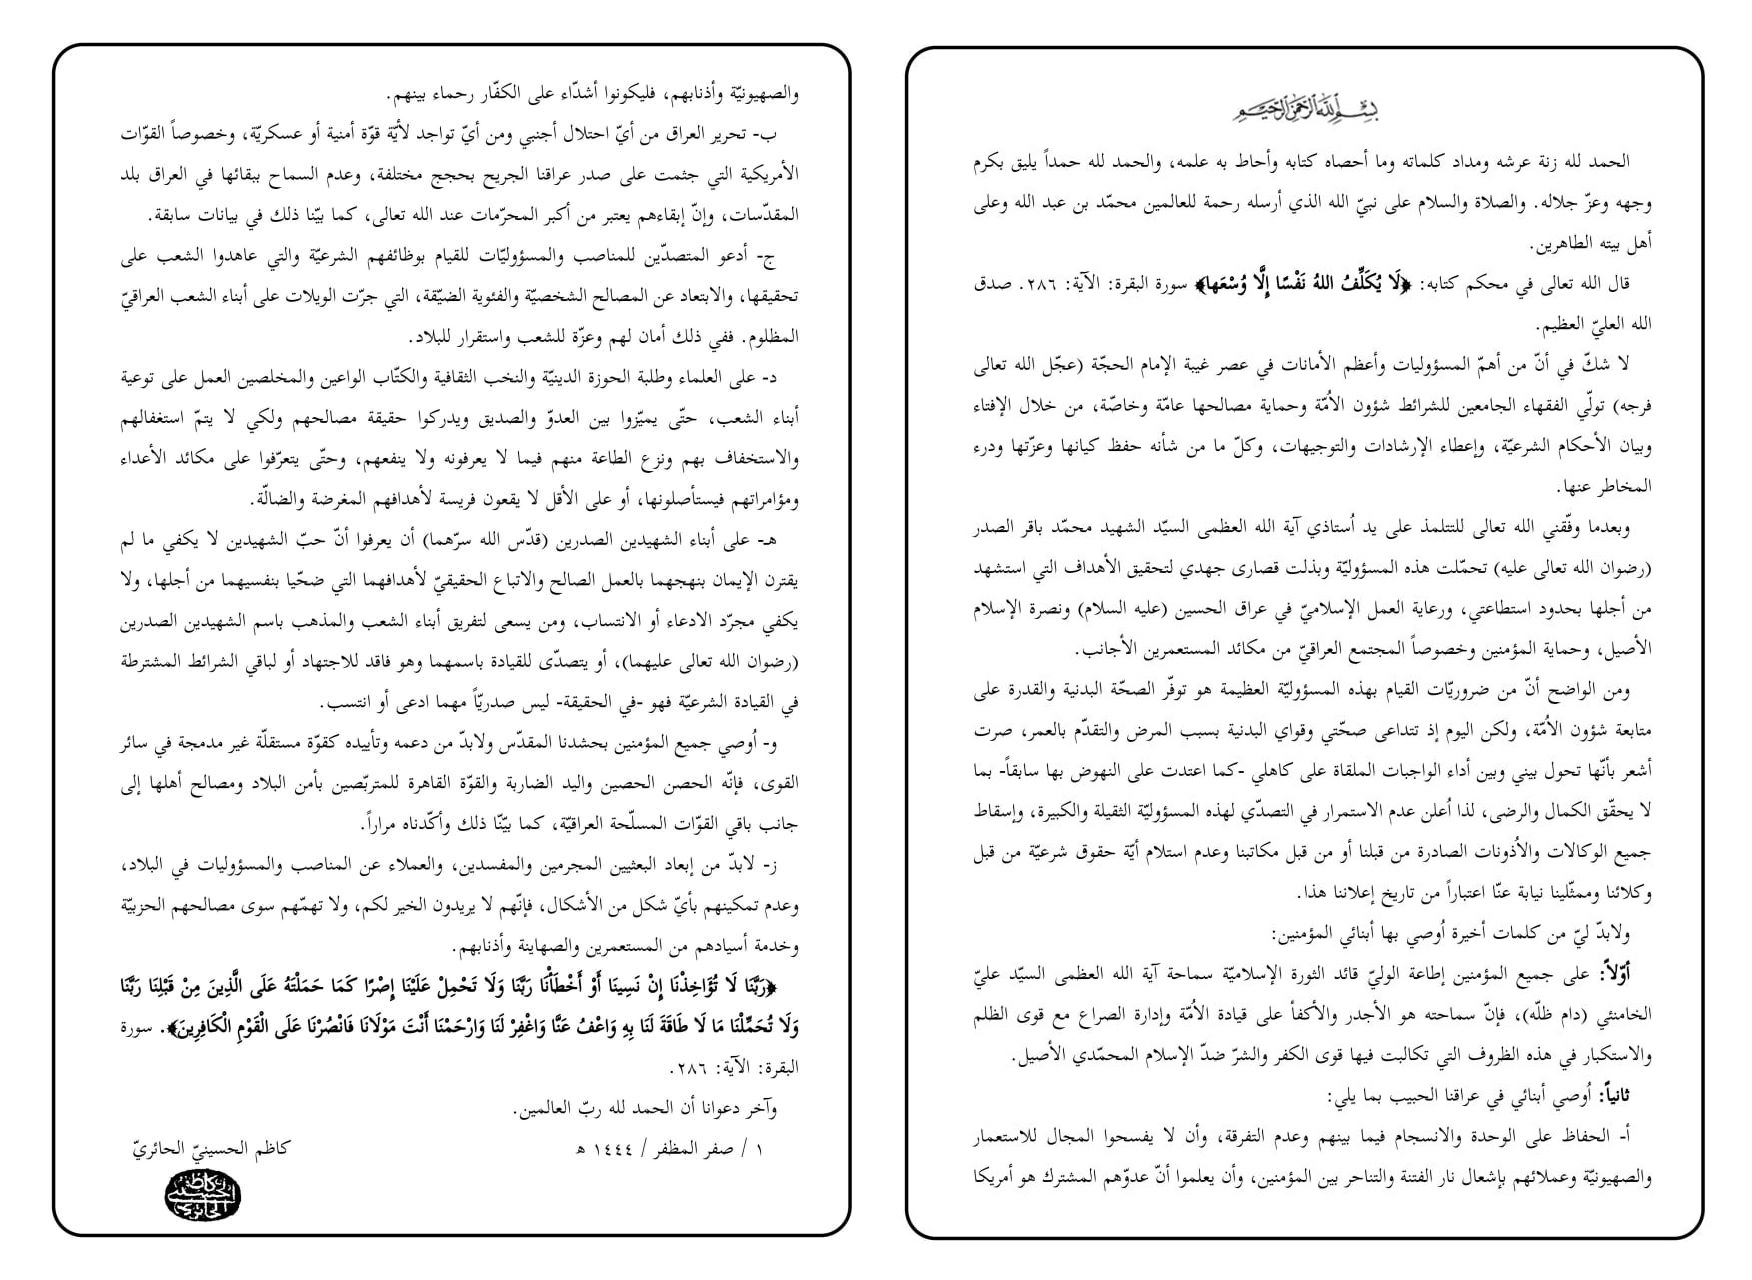 بسم الله الرحمن الرحيم
الحمد لله زنة عرشه ومداد كلماته وما أحصاه كتابه وأحاط به علمه، والحمد لله حمداً يليق بكرم
وجهه وعزّ جلاله. والصلاة والسلام على نبيّ الله الذي أرسله رحمة للعالمين محمّد بن عبد الله وعلى
أهل بيته الطاهرين.
قال الله تعالى في محكم كتابه: ﴿لَا يُكَلِّفُ اللهُ نَفْسًا إِلَّا وُسْعَها﴾ سورة البقرة: الآية: ٢٨٦. صدق
الله العليّ العظيم.
لا شكّ في أنّ من أهمّ المسؤوليات وأعظم الأمانات في عصر غيبة الإمام الحجّة (عجّل الله تعالى
فرجه) تولّي الفقهاء الجامعين للشرائط شؤون الأمّة وحماية مصالحها عامّة وخاصّة، من خلال الإفتاء
وبيان الأحكام الشرعيّة، وإعطاء الإرشادات والتوجيهات، وكلّ ما من شأنه حفظ كيانها وعزّتها ودرء
المخاطر عنها.
وبعدما وفّقني الله تعالى للتتلمذ على يد أُستاذي آية الله العظمى السيّد الشهيد محمّد باقر الصدر
(رضوان الله تعالى عليه) تحمّلت هذه المسؤوليّة وبذلت قصارى جهدي لتحقيق الأهداف التي استشهد
من أجلها بحدود استطاعتي، ورعاية العمل الإسلاميّ في عراق الحسين (عليه السلام) ونصرة الإسلام
الأصيل، وحماية المؤمنين وخصوصاً المجتمع العراقيّ من مكائد المستعمرين الأجانب.
ومن الواضح أنّ من ضروريّات القيام بهذه المسؤوليّة العظيمة هو توفّر الصحّة البدنية والقدرة على
متابعة شؤون الأمّة، ولكن اليوم إذ تتداعى صحّتي وقواي البدنية بسبب المرض والتقدّم بالعمر، صرت
أشعر بأنّها تحول بيني وبين أداء الواجبات الملقاة على كاهلي -كما اعتدت على النهوض بها سابقاً- بما
لا يحقّق الكمال والرضى، لذا أُعلن عدم الاستمرار في التصدّي لهذه المسؤوليّة الثقيلة والكبيرة، وإسقاط
جميع الوكالات والأُذونات الصادرة من قبلنا أو من قبل مكاتبنا وعدم استلام أيّة حقوق شرعيّة من قبل
وكلائنا وممثّلينا نيابة عنّا اعتباراً من تاريخ إعلاننا هذا.
ولابدّ ليّ من كلمات أخيرة أُوصي بها أبنائي المؤمنين:
أوّلاً: على جميع المؤمنين إطاعة الوليّ قائد الثورة الإسلاميّة سماحة آية الله العظمى السيّد عليّ
الخامنئي (دام ظلّه)، فإنّ سماحته هو الأجدر والأكفأ على قيادة الأمّة وإدارة الصراع مع قوى الظلم
والاستكبار في هذه الظروف التي تكالبت فيها قوى الكفر والشرّ ضدّ الإسلام المحمّدي الأصيل.
ثانياً: أُوصي أبنائي في عراقنا الحبيب بما يلي:
أ- الحفاظ على الوحدة والانسجام فيما بينهم وعدم التفرقة، وأن لا يفسحوا المجال للاستعمار
والصهيونيّة وعملائهم بإشعال نار الفتنة والتناحر بين المؤمنين، وأن يعلموا أنّ عدوّهم المشترك هو أمريكا
والصهيونيّة وأذنابهم، فليكونوا أشدّاء على الكفّار رحماء بينهم.
ب- تحرير العراق من أيّ احتلال أجنبي ومن أيّ تواجد لأيّة قوّة أمنية أو عسكريّة، وخصوصاً القوّات
الأمريكية التي جثمت على صدر عراقنا الجريح بحجج مختلفة، وعدم السماح ببقائها في العراق بلد
المقدّسات، وإنّ إبقاءهم يعتبر من أكبر المحرّمات عند الله تعالى، كما بيّنا ذلك في بيانات سابقة.
ج- أدعو المتصدّين للمناصب والمسؤوليّات للقيام بوظائفهم الشرعيّة والتي عاهدوا الشعب على
تحقيقها، والابتعاد عن المصالح الشخصيّة والفئوية الضيّقة، التي جرّت الويلات على أبناء الشعب العراقيّ
المظلوم. ففي ذلك أمان لهم وعزّة للشعب واستقرار للبلاد.
د- على العلماء وطلبة الحوزة الدينيّة والنخب الثقافية والكتّاب الواعين والمخلصين العمل على توعية
أبناء الشعب، حتّى يميّزوا بين العدوّ والصديق ويدركوا حقيقة مصالحهم ولكي لا يتمّ استغفالهم
والاستخفاف بهم ونزع الطاعة منهم فيما لا يعرفونه ولا ينفعهم، وحتّى يتعرّفوا على مكائد الأعداء
ومؤامراتهم فيستأصلونها، أو على الأقل لا يقعون فريسة لأهدافهم المغرضة والضالّة.
هـ- على أبناء الشهيدين الصدرين (قدّس الله سرّهما) أن يعرفوا أنّ حبّ الشهيدين لا يكفي ما لم
يقترن الإيمان بنهجهما بالعمل الصالح والاتباع الحقيقيّ لأهدافهما التي ضحّيا بنفسيهما من أجلها، ولا
يكفي مجرّد الادعاء أو الانتساب، ومن يسعى لتفريق أبناء الشعب والمذهب باسم الشهيدين الصدرين
(رضوان الله تعالى عليهما)، أو يتصدّى للقيادة باسمهما وهو فاقد للاجتهاد أو لباقي الشرائط المشترطة
في القيادة الشرعيّة فهو -في الحقيقة- ليس صدريّاً مهما ادعى أو انتسب.
و- أُوصي جميع المؤمنين بحشدنا المقدّس ولابدّ من دعمه وتأييده كقوّة مستقلّة غير مدمجة في سائر
القوى، فإنّه الحصن الحصين واليد الضاربة والقوّة القاهرة للمتربّصين بأمن البلاد ومصالح أهلها إلى
جانب باقي القوّات المسلّحة العراقيّة، كما بيّنّا ذلك وأكّدناه مراراً.
ز- لابدّ من إبعاد البعثيين المجرمين والمفسدين، والعملاء عن المناصب والمسؤوليات في البلاد،
وعدم تمكينهم بأيّ شكل من الأشكال، فإنّهم لا يريدون الخير لكم، ولا تهمّهم سوى مصالحهم الحزبيّة
وخدمة أسيادهم من المستعمرين والصهاينة وأذنابهم.
﴿رَبَّنَا لَا تُؤَاخِذْنَا إِنْ نَسِينَا أَوْ أَخْطَأْنَا رَبَّنَا وَلَا تَحْمِلْ عَلَيْنَا إِصْرًا كَمَا حَمَلْتَهُ عَلَى الَّذِينَ مِنْ قَبْلِنَا رَبَّنَا
وَلَا تُحَمِّلْنَا مَا لَا طَاقَةَ لَنَا بِهِ وَاعْفُ عَنَّا وَاغْفِرْ لَنَا وَارْحَمْنَا أَنْتَ مَوْلَانَا فَانْصُرْنَا عَلَى الْقَوْمِ الْكَافِرِينَ﴾. سورة
البقرة: الآية: ٢٨٦.
وآخر دعوانا أن الحمد لله ربّ العالمين.
١ / صفر المظفر / ١٤٤٤ هـ
كاظم الحسينيّ الحائريّ
كاظم
الحسيني
الحائري